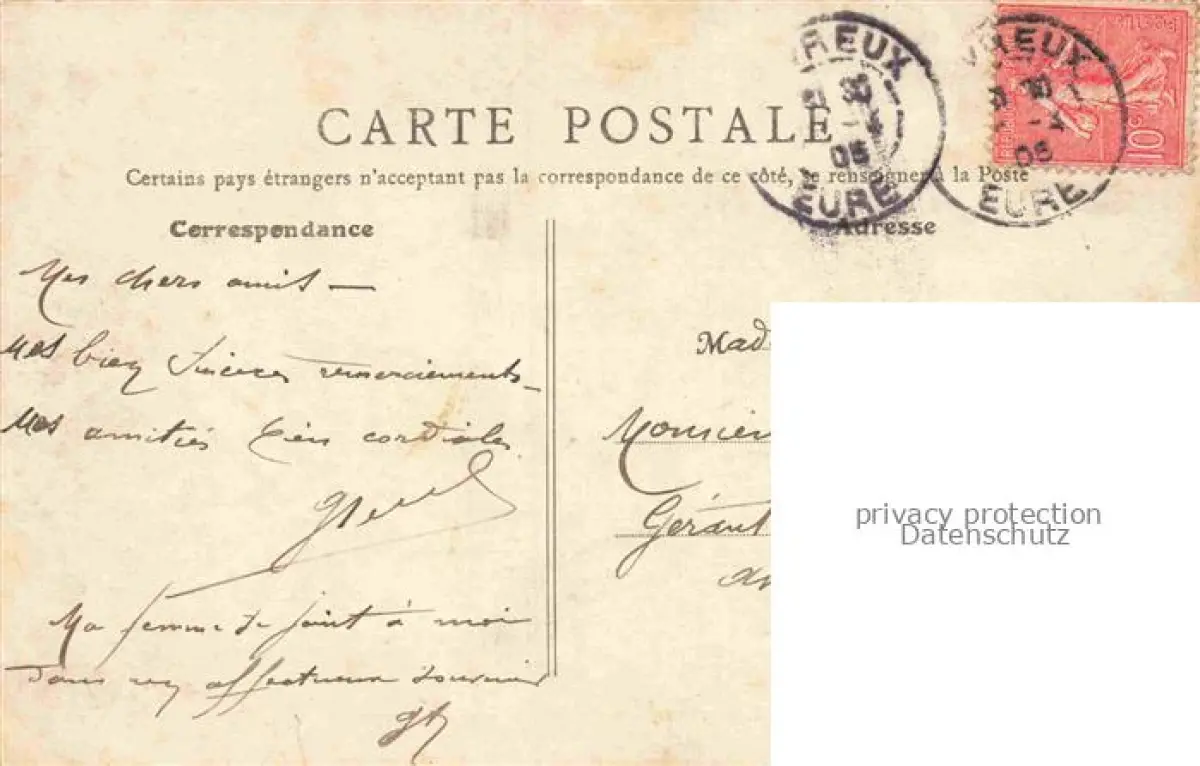 CARTE POSTALE
Certains pays étrangers n'acceptent pas la correspondance de ce côté, se renseigner à la Poste
VREUX
05
EURE
VREUX
05
EURE
10c
Correspondance
Adresse
Mes chers amis —
mes bien sincères remerciements —
mes amitiés bien cordiales
Ma femme se joint à moi
dans un affectueux souvenir
Mad
Monsieu
Gérant
privacy protection
Datenschutz